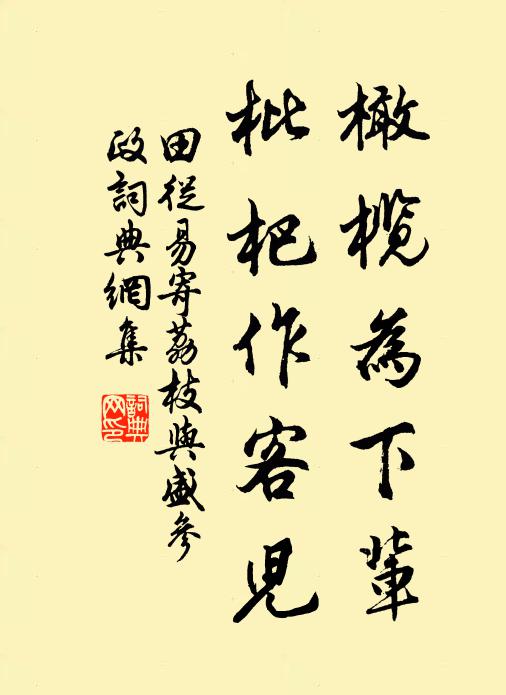 橄欖為下輩
枇杷作客兒
田從易寄荔枝與盛參
政詞典網集
詞典
网印